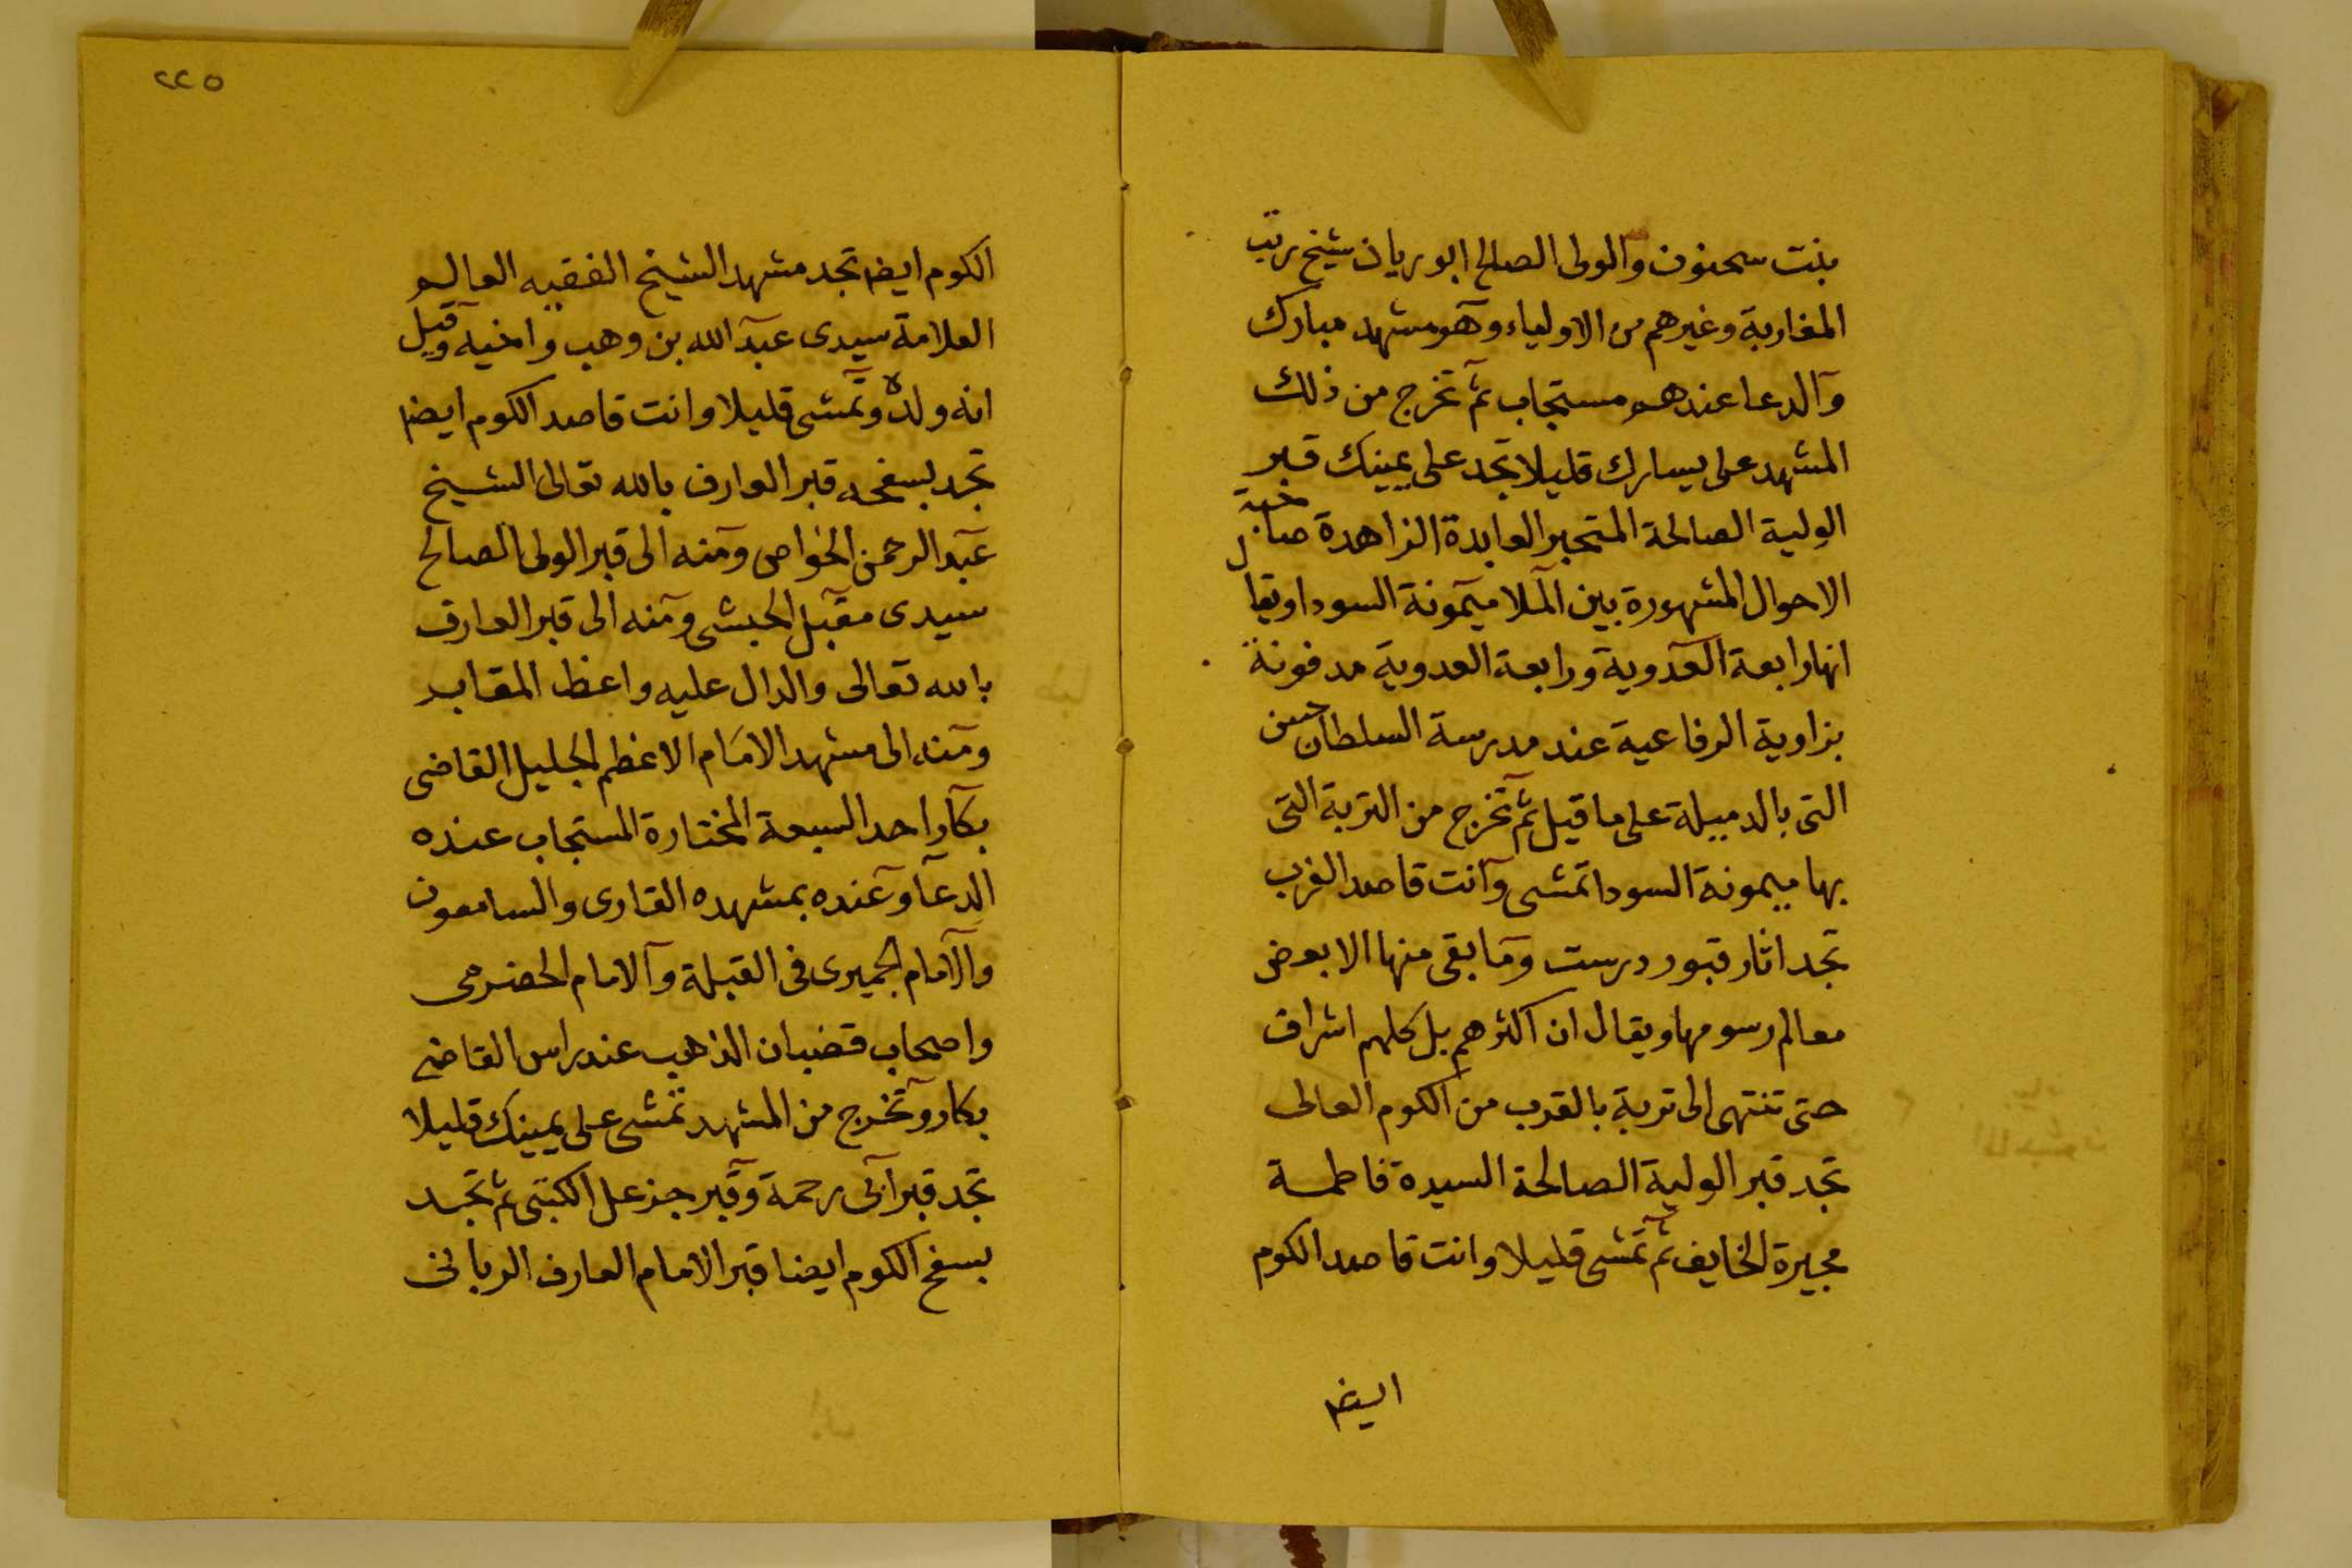 بنت سحنون والولى الصالح ابو ريان شيخ تربت
المغاربة وغيرهم من الاولياء وهو مشهد مبارك
والدعا عندهم مستجاب ثم تخرج من ذلك
المشهد على يسارك قليلا تجد على يمينك قبر
الولية الصالحة العابدة الزاهدة صاحبة
الاحوال المشهورة بين الملا ميمونة السودا ويقال
انها رابعة العدوية ورابعة العدوية مدفونة
بزاوية الرفاعية عند مدرسة السلطان حسن
التى بالدميلة على ما قيل ثم تخرج من التربة التى
بها ميمونة السودا تمشى وانت قاصد الغرب
تجد اثار قبور درست وما بقى منها الا بعض
معالم رسومها ويقال ان اكثرهم بل كلهم اشراف
حتى تنتهى الى تربة بالقرب من الكوم العالى
تجد قبر الولية الصالحة السيدة فاطمة
مجيرة الخايف ثم تمشى قليلا وانت قاصد الكوم
ايضا
٢٢٥
الكوم ايضا تجد مشهد الشيخ الفقيه العالم
العلامة سيدى عبد الله بن وهب واخيه وقيل
انه ولده وتمشى قليلا وانت قاصد الكوم ايضا
تجد بسفحه قبر العارف بالله تعالى الشيخ
عبد الرحمن الخواص ومنه الى قبر الولى الصالح
سيدى مقبل الحبشى ومنه الى قبر العارف
بالله تعالى والدال عليه واعظ المقابر
ومنه الى مشهد الامام الاعظم الجليل القاضى
بكار احد السبعة المختارة المستجاب عنده
الدعا وعنده بمشهده القارى والسامعون
والامام الحميرى فى القبلة والامام الحضرمى
واصحاب قضبان الذهب عند راس القاضى
بكار وتخرج من المشهد تمشى على يمينك قليلا
تجد قبر ابى رحمة وقبر جزعل الكبتى ثم تجد
بسفح الكوم ايضا قبر الامام العارف الربانى